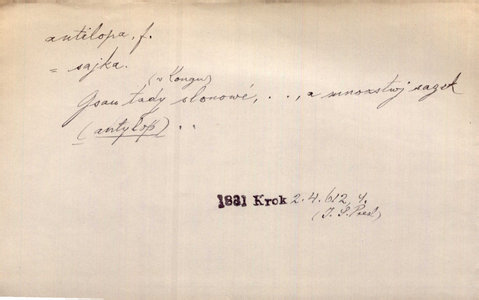 antilopa, f.
= sajka.
(v Kongu)
Gsau tady slonowé, . . ., a mnoxstwj sagek
(antylop) . .
1831 Krok 2. 4. 612, 4.
(J. S. Presl)